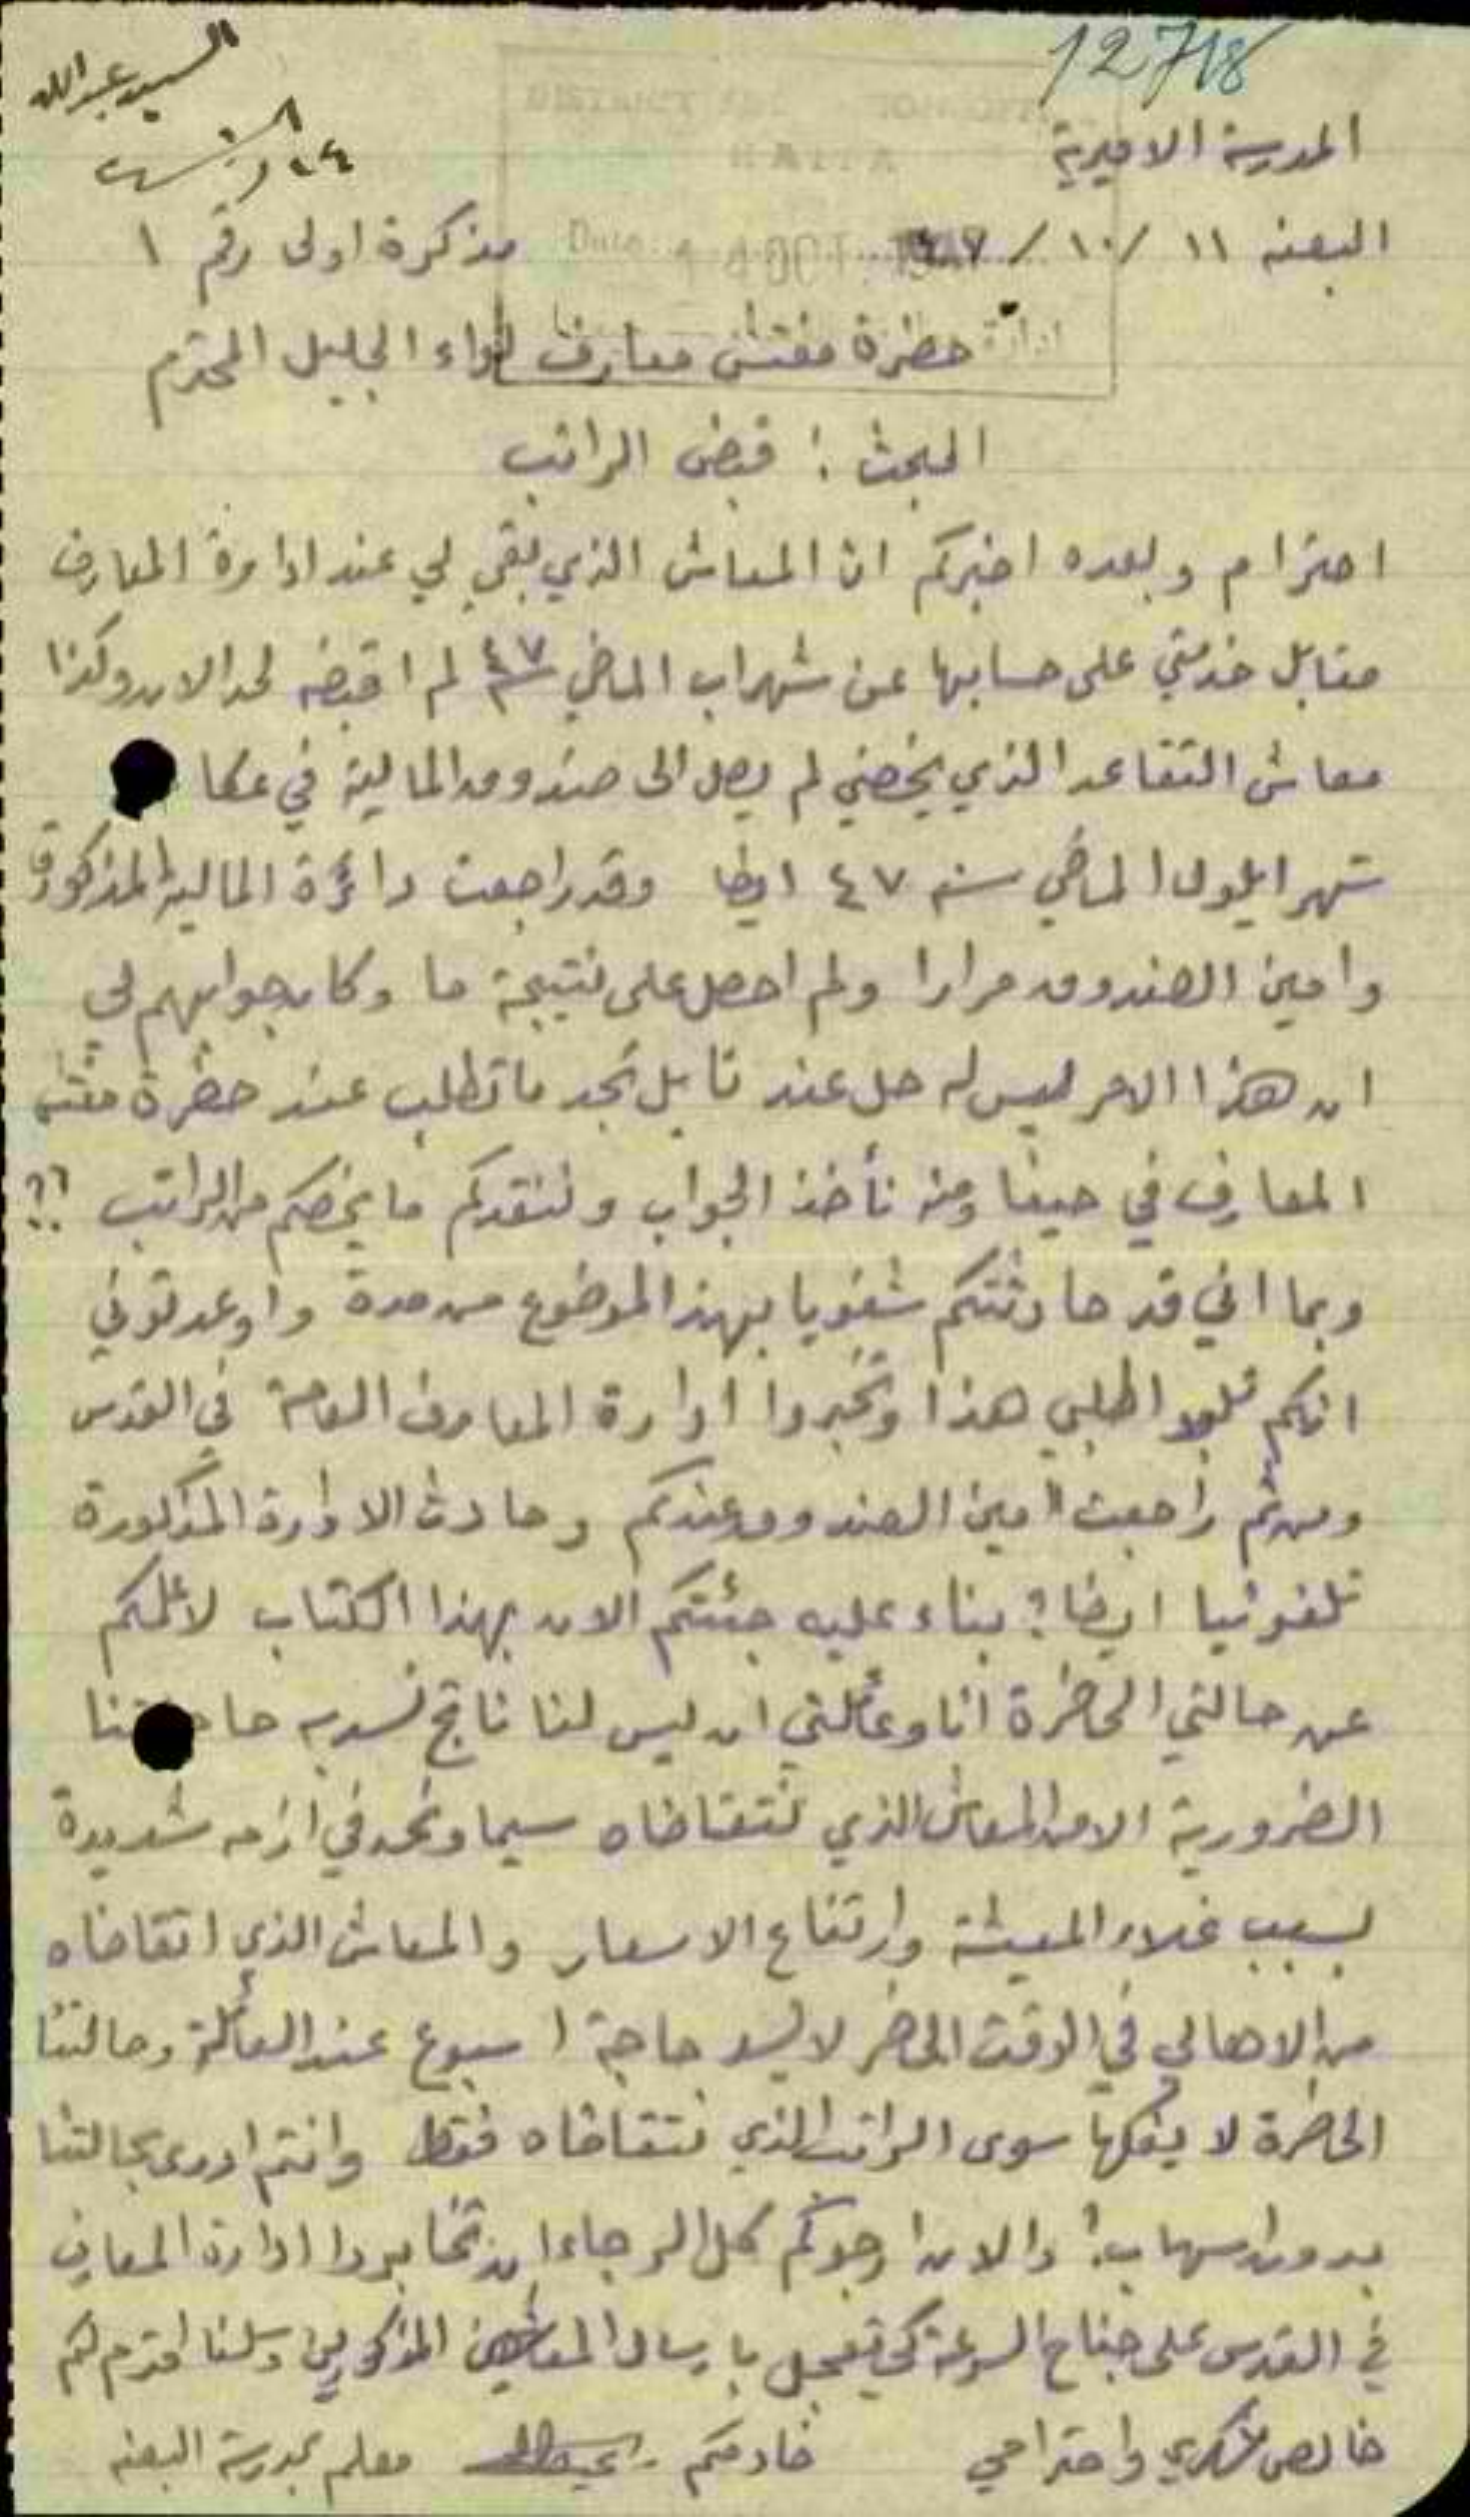 12718
السيد عبدالله
DISTRICT
HAIFA
المدرسة الاميرية
البعنه ١١ /١٠/ ٤٧ مذكرة اولى رقم ١
Date: 14 OCT 1947
حضرة مفتش معارف لواء الجليل المحترم
البحث : قبض الراتب
احترام وبعده اخبركم ان المعاش الذي بقي لي عند ادارة المعارف
مقابل خدمتي على حسابها عن شهر اب الماضي ٤٧ لم اقبضه لحد الان وكذا
معاش التقاعد الذي يخصني لم يصل الى صندوق المالية في عكا
شهر ايلول الماضي سنه ٤٧ ايضا وقد راجعت دائرة المالية المذكورة
وامين الصندوق مرارا ولم احصل على نتيجة ما وكان جوابهم لي
ان هذا الامر ليس له حل عندنا بل تجد ما تطلب عند حضرة مفتش
المعارف في حيفا ومنه نأخذ الجواب وننقدكم ما يخصكم من الراتب ؟!
وبما اني قد حادثتكم شفويا بهذا الموضوع من مدة واوعدتوني
انكم تلبوا طلبي هذا وتخبروا ادارة المعارف العامة في القدس
ومن ثم راجعت امين الصندوق عندكم وحادث الادارة المذكورة
تلفونيا ايضا ؟ بناء عليه جئتكم الان بهذا الكتاب لاعلمكم
عن حالتي الحاضرة انا وعائلتي ان ليس لنا ناتج نسد به حاجتنا
الضرورية الا من المعاش الذي نتقاضاه سيما ونحن في ازمه شديدة
بسبب غلاء المعيشة وارتفاع الاسعار والمعاش الذي اتقاضاه
من الاهالي في الوقت الحاضر لا يسد حاجة اسبوع عند العائلة وحالتنا
الحاضرة لا يفكها سوى الراتب الذي نتقاضاه فقط وانتم ادرى بحالتنا
بدون اسهاب ! والان ارجوكم كل الرجاء ان تخابروا ادارة المعارف
في القدس على جناح السرعة كي تعجل بارسال المعاشين المذكورين وسلفا اقدم لكم
خالص شكري واحترامي خادمكم معلم بمدرسة البعنه